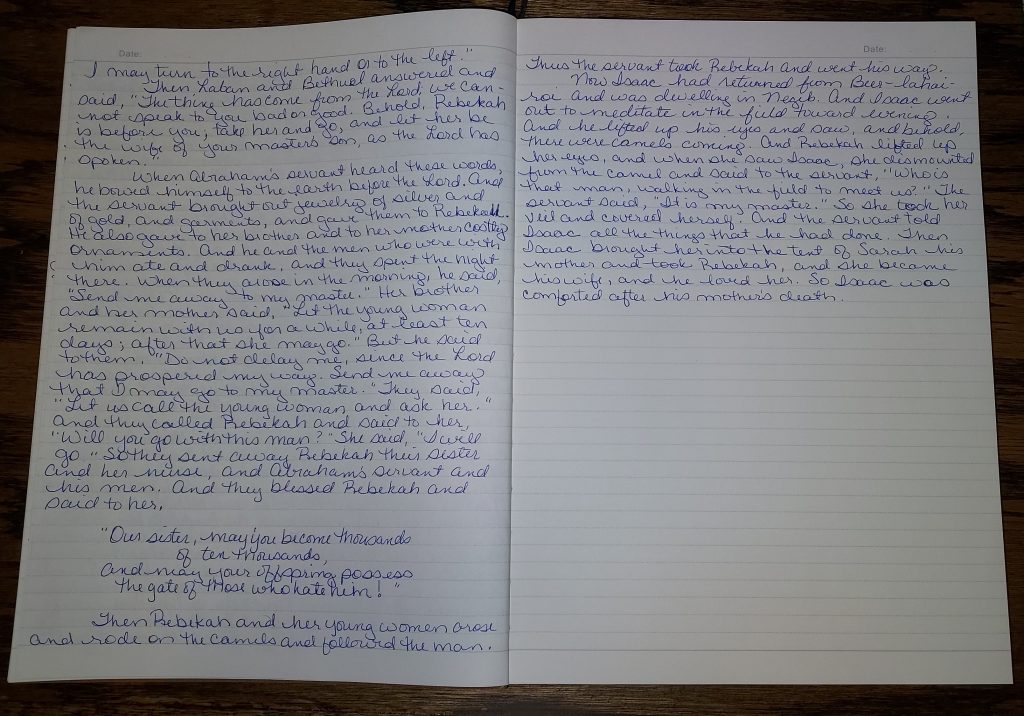 Date:
I may turn to the right hand or to the left."
Then Laban and Bethuel answered and
said, "The thing has come from the Lord; we can-
not speak to you bad or good. Behold, Rebekah
is before you; take her and go, and let her be
the wife of your master's son, as the Lord has
spoken."
When Abraham's servant heard these words,
he bowed himself to the earth before the Lord. And
the servant brought out jewelry of silver and
of gold, and garments, and gave them to Rebekah.
He also gave to her brother and to her mother costly
ornaments. And he and the men who were with
him ate and drank, and they spent the night
there. When they arose in the morning, he said,
"Send me away to my master." Her brother
and her mother said, "Let the young woman
remain with us for a while, at least ten
days; after that she may go." But he said
to them, "Do not delay me, since the Lord
has prospered my way. Send me away
that I may go to my master." They said,
"Let us call the young woman and ask her."
And they called Rebekah and said to her,
"Will you go with this man?" She said, "I will
go." So they sent away Rebekah their sister
and her nurse, and Abraham's servant and
his men. And they blessed Rebekah and
said to her,
"Our sister, may you become thousands
of ten thousands,
and may your offspring possess
the gate of those who hate him!"
Then Rebekah and her young women arose
and rode on the camels and followed the man.
Date:
Thus the servant took Rebekah and went his way.
Now Isaac had returned from Beer-lahai-
roi and was dwelling in Negeb. And Isaac went
out to meditate in the field toward evening.
And he lifted up his eyes and saw, and behold,
there were camels coming. And Rebekah lifted up
her eyes, and when she saw Isaac, she dismounted
from the camel and said to the servant, "Who is
that man, walking in the field to meet us?" The
servant said, "It is my master." So she took her
veil and covered herself. And the servant told
Isaac all the things that he had done. Then
Isaac brought her into the tent of Sarah his
mother and took Rebekah, and she became
his wife, and he loved her. So Isaac was
comforted after his mother's death.